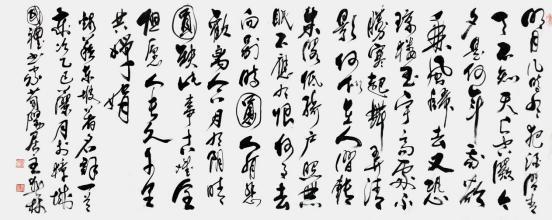 明月几时有把酒问青
天不知天上宫阙今
夕是何年我欲
乘风归去又恐
琼楼玉宇高处不
胜寒起舞弄清
影何似在人间转
朱阁低绮户照无
眠不应有恨何事长
向别时圆人有悲
欢离合月有阴晴
圆缺此事古难全
但愿人长久千里
共婵娟
苏东坡著名词一首
岁次乙巳